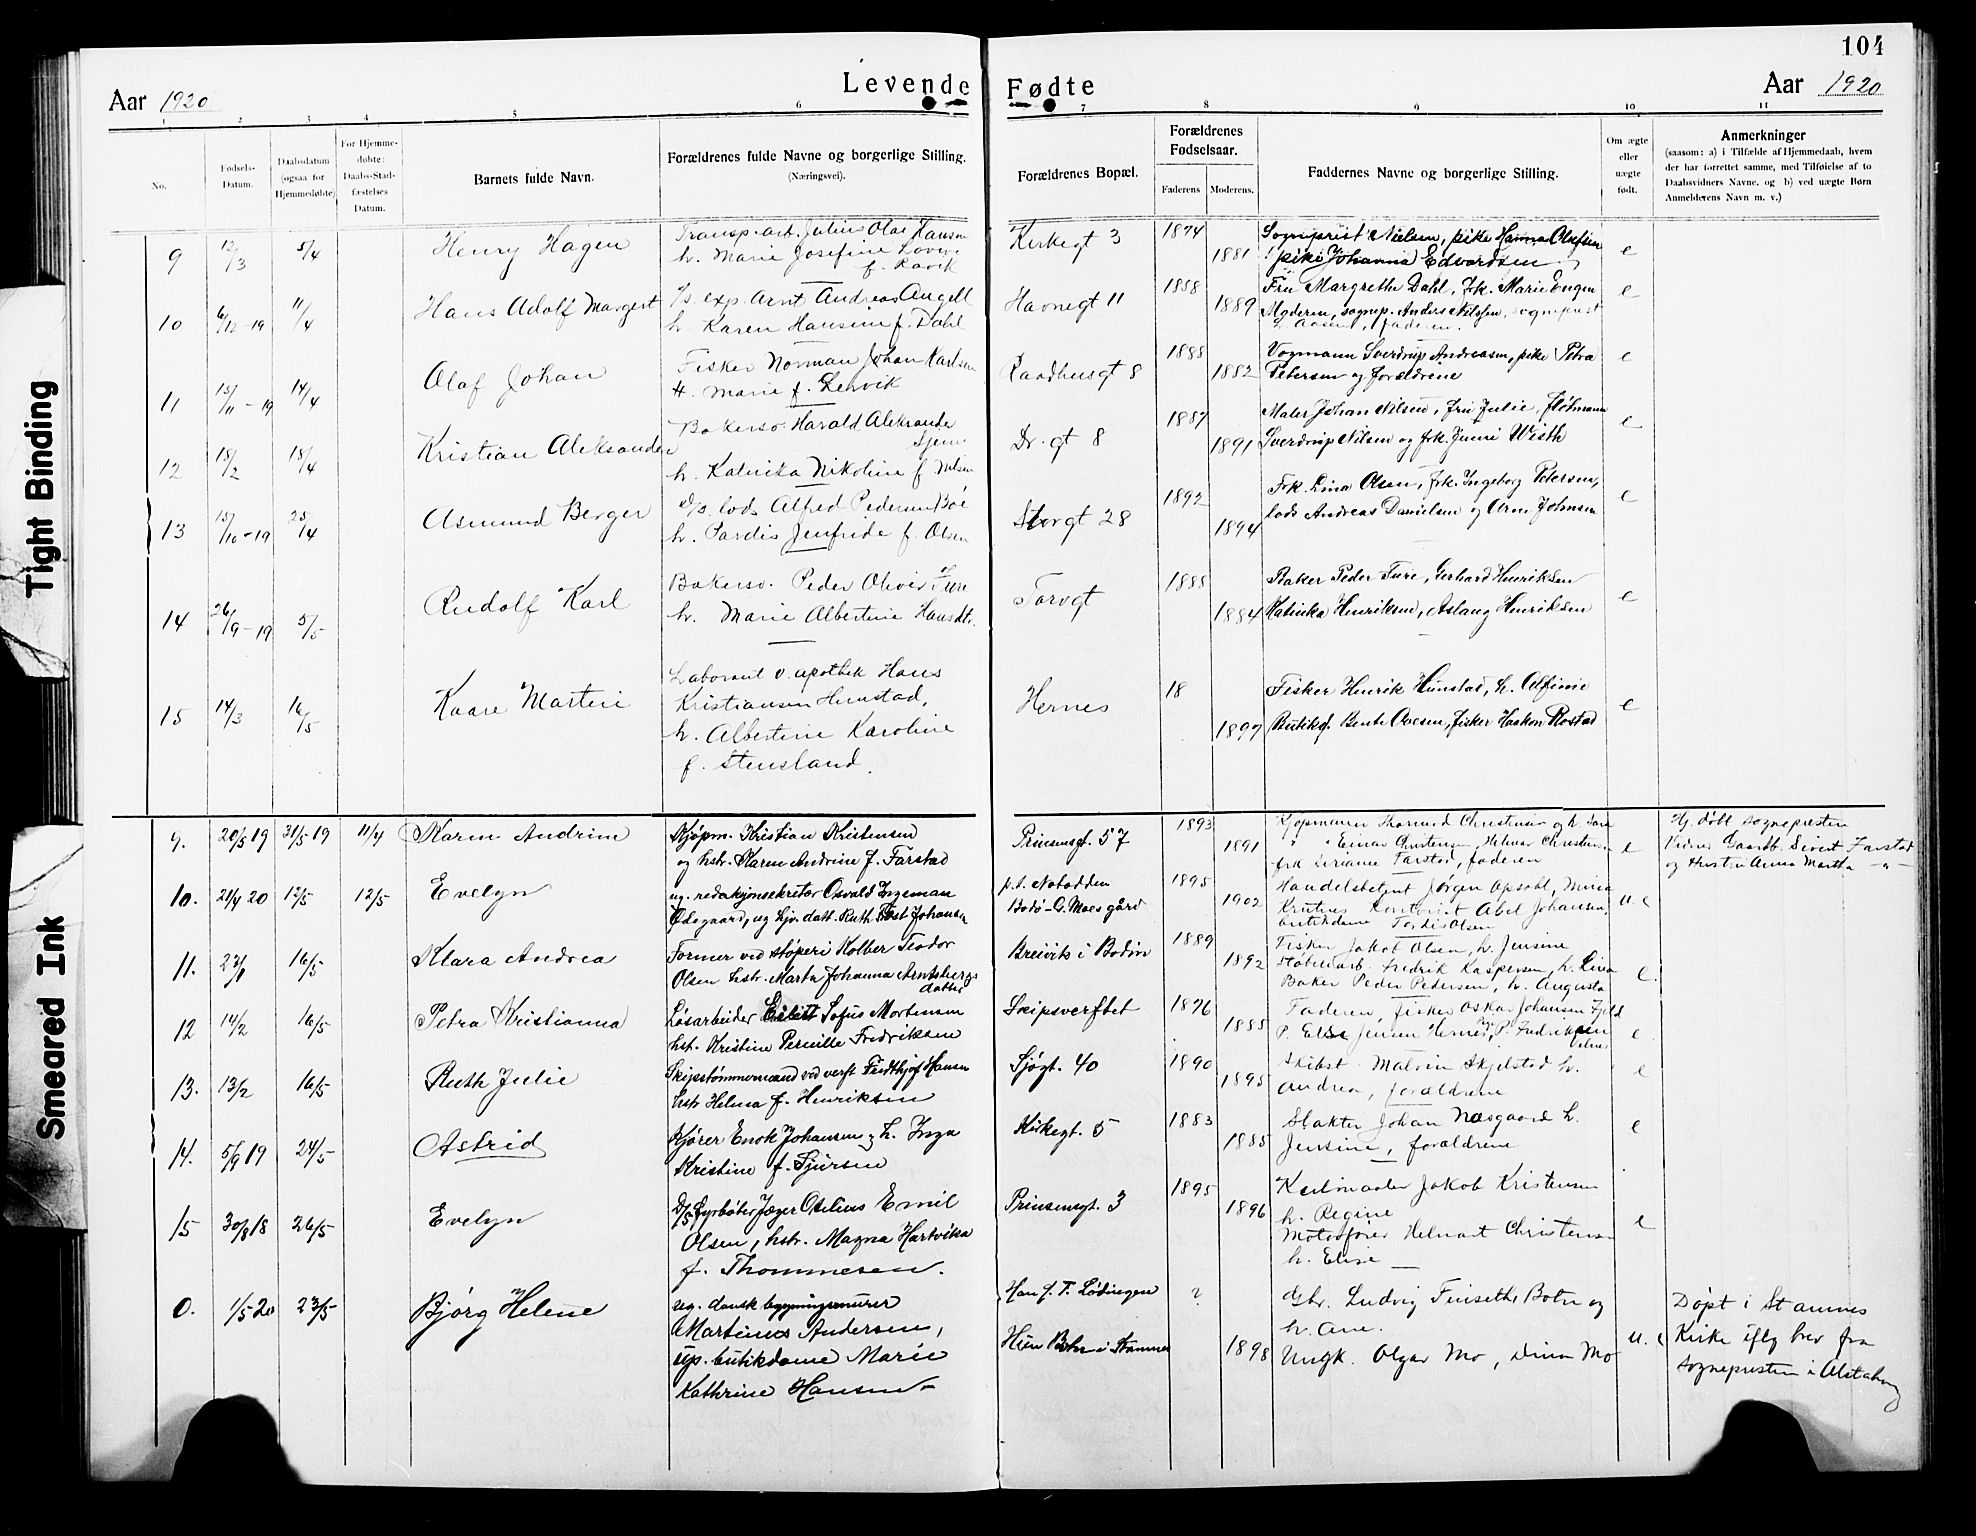 104
Levende Fødte
Aar 1920
Aar 1920
1 2 3 4 5 6 7 8 9 10 11
No.
Fødsels-
Datum.
Daabsdatum
(ogsaa for
Hjemmedøbte)
For Hjemme-
døbte:
Daabs-Stad-
fæstelses
Datum.
Barnets fulde Navn.
Forældrenes fulde Navne og borgerlige Stilling.
(Næringsvei).
Forældrenes Bopæl.
Forældrenes
Fødselsaar.
Faderens. Moderens.
Faddernes Navne og borgerlige Stilling.
Om ægte
eller
uægte
født.
Anmerkninger
(saasom: a) i Tilfælde af Hjemmedaab, hvem
der har forrettet samme, med Tilføielse af to
Daabsvidners Navne, og b) ved uægte Børn
Anmelderens Navn m. v.)
9 12/3 5/4 Henry Hagen
Transp.arb. Julius Olai Hanson
h. Marie Josefine
Kirkegt 3 1874 1881
Sogneprest Nielsen, pike Hanna Olufsen
pike Johanna Edvardsen e
10 6/12-19 11/4 Hans Adolf Margert
D/s. exp. Arnt Andreas Angell
h. Karen Hansine f. Dahl
Havnegt 11 1858 1889
Fru Margrethe Dahl, frk. Marie Engen
Moderen, sognep. Anders Nilsen, sogneprest
Aasen, faderen. e
11 15/11-19 14/4 Olaf Johan
Fisker Norman Johan Karlsen
H. Marie f. Lenvik
Raadhusgt 8 1888 1882
Vogmann Sverdrup Andreasen, pike Petra
Petersen og forældrene e
12 18/2 18/4 Kristian Aleksander
Bakersv. Harald Aleksander
h. Katinka Nikoline f. Nilsen
Dr.gt 8 1887 1891
Maler Johan Nilsen, fru Julie,
Sverdrup Nilsen og frk. Wisth e
13 15/10-19 25/4 Asmund Berger
D/s. lods Alfred Pedersen Bøe
h. Pardis Jenfride f. Olsen
Storgt 28 1892 1894
Frk. Lina Olsen, frk. Ingeborg Petersen,
lods Andreas Danielsen og Arne Johnsen e
14 26/9-19 5/5 Rudolf Karl
Bakersv. Peder Oliver Ture
h. Marie Albertine Hansdtr.
Torvgt 1885 1884
Baker Peder Ture, Gerhard Henriksen
Katinka Henriksen, Aslaug Henriksen e
15 14/3 16/5 Kaare Martin
Laborant v. apothek Hans
Kristiansen Hunstad,
h. Albertine Karoline
f. Stensland.
Hernes 18 1897
Fisker Henrik Hunstad, h. Alfine
Butikd. Bente Ovesen, fisker Haakon Rostad e
9. 20/5 19 31/5 19 11/4 Karen Andrine
Kjøpm. Kristian Kristensen
og hstr. Karen Andrine f. Farstad
Prinsensgt. 57 1893 1891
Kjøpmann Thorvald Christensen og h. Sara
" " Einar Christensen, Hilmar Christensen
frk. Farstad, faderen e
Hj. døbt sognepresten
Vidner Gaardb. Sivert Farstad
og Hustru Anna Martha -"-
10. 21/4 20 12/5 12/5 Evelyn
ug. redaksjonsekretær Osvald Ingeman
Ødegaard, ug hjv. datt. Ruth Johansen
p.t. Notodden
Bodø - G. Moes gård 1895 1902
Handelsbetjent Jørgen Opsahl, Mina
Kontorist Abel Johansen,
butikdame Tordis Olsen u. e
11. 23/1 16/5 Klara Andrea
Former ved støperi Kolber Teodor
Olsen hstr. Marta Johanna Arntsbergs
datter
Breivik i Bodin 1889 1892
Fisker Jakob Olsen, h. Jensine
Støberiarb. Fredrik Kaspersen, h. Lina
Baker Peder Pedersen, h. Augusta e.
12 14/2 16/5 Petra Kristianna
Løsarbeider Eilert Sofus Mortensen
hst. Kristine Pernille Fredriksen
Skipsverftet 1876 1885
Faderen, fisker Oskar Johansen Fjeld
P. Else Jensen Hernes, P. Fredriksen e
13. 13/2 16/5 Ruth Julie
Skipstømmermand ved verft Fridthjof Hansen
hstr Helma f. Henriksen
Sjøgt. 40 1890 1895
Skibst. Malvin Skjelstad h.
Andrea, forældrene e
14. 5/9 19 24/5 Astrid
Kjører Enok Johansen og h. Inga
Kristine f. Sjursen
Kirkegt. 5 1883 1885
Slakter Johan Næsgaard h.
Jensine, forældrene e
15 30/8 18 26/5 Evelyn
D/s fyrbøter Jæger Otelius Emil
Olsen, hstr. Magna Hartvika
f. Thommesen.
Prinsensgt. 3 1895 1896
Jakob Kristensen
h. Regine
Motorfører Helmart Christensen
h. Elise e
0. 1/5 20 23/5 Bjørg Helene
ug. dansk bygningsmurer
Martinus Andersen,
up. butikdame Marie
Kathrine Hansen
Han f. T. Lødingen
Hun Botn i Stamnes ? 1898
Gbr. Ludvig Finseth, Botn og
h. Ane.
Ungk. Olgar Mo, Dina Mo u. e
Døpt i Stamnes
Kirke iflg brev fra
sognepresten i Alstahaug
Tight Binding
Smeared Ink